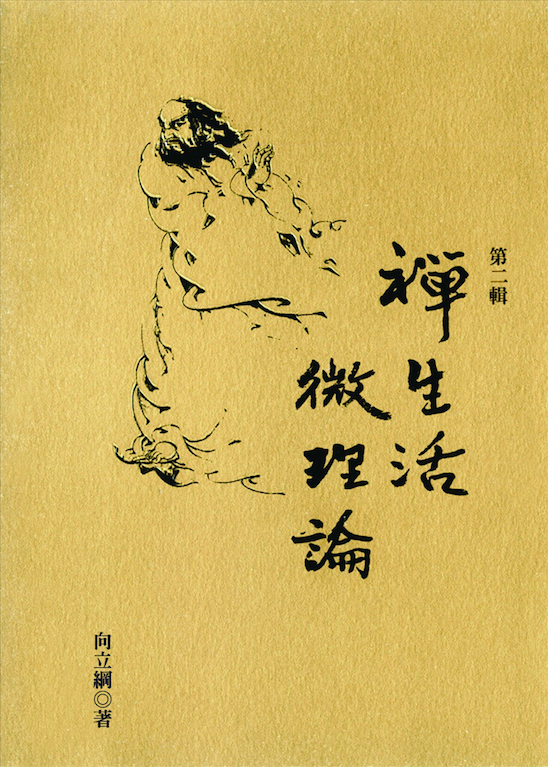 第二輯
禪生活
微理論
向立綱◎著